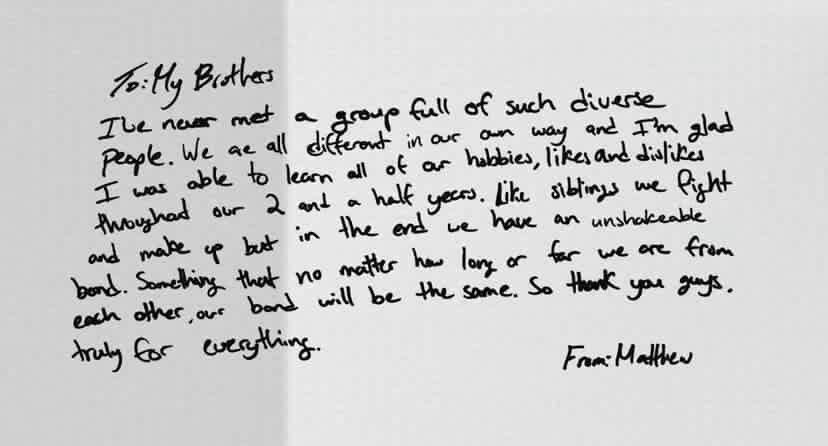 To: My Brothers
I've never met a group full of such diverse
people. We ae all different in our own way and I'm glad
I was able to learn all of our hobbies, likes and dislikes
throughout our 2 and a half years. Like siblings we fight
and make up but in the end we have an unshakeable
bond. Something that no matter how long or far we are from
each other, our bond will be the same. So thank you guys.
truly for everything.
From: Matthew